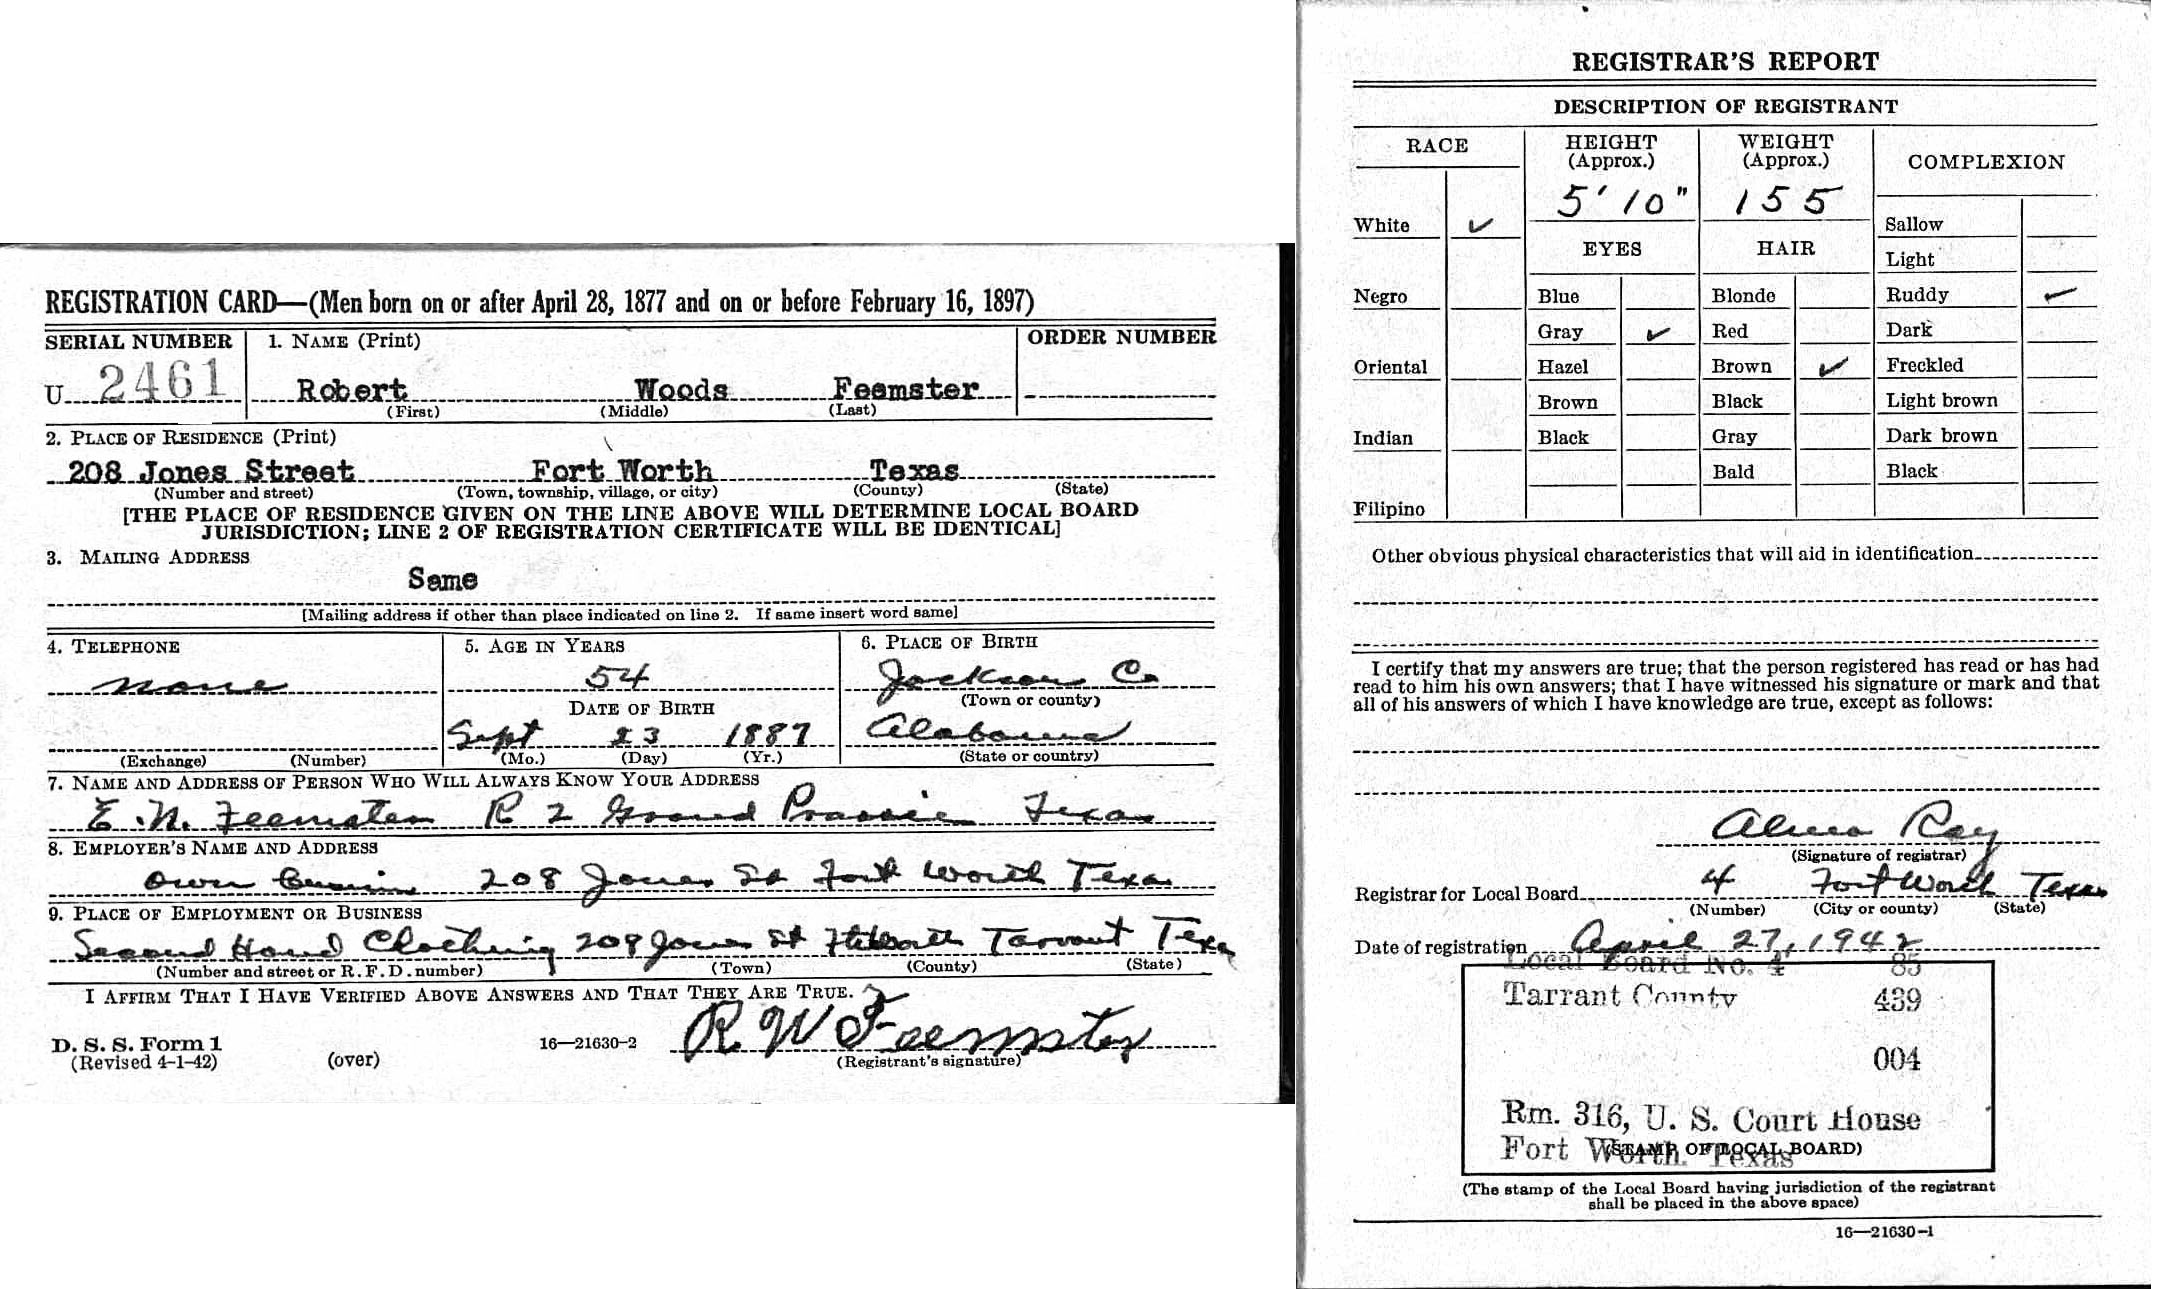 REGISTRATION CARD—(Men born on or after April 28, 1877 and on or before February 16, 1897)
SERIAL NUMBER 1. NAME (Print) ORDER NUMBER
U 2461 Robert Woods Feemster
(First) (Middle) (Last)
2. PLACE OF RESIDENCE (Print)
208 Jones Street Fort Worth Texas
(Number and street) (Town, township, village, or city) (County) (State)
[THE PLACE OF RESIDENCE GIVEN ON THE LINE ABOVE WILL DETERMINE LOCAL BOARD
JURISDICTION; LINE 2 OF REGISTRATION CERTIFICATE WILL BE IDENTICAL]
3. MAILING ADDRESS
Same
[Mailing address if other than place indicated on line 2. If same insert word same]
4. TELEPHONE 5. AGE IN YEARS 6. PLACE OF BIRTH
none 54 Jackson Co
(Town or county)
DATE OF BIRTH
Sept 23 1887 Alabama
(Exchange) (Number) (Mo.) (Day) (Yr.) (State or country)
7. NAME AND ADDRESS OF PERSON WHO WILL ALWAYS KNOW YOUR ADDRESS
E. N. Feemster R 2 Grand Prairie Texas
8. EMPLOYER'S NAME AND ADDRESS
own Business 208 Jones St Fort Worth Texas
9. PLACE OF EMPLOYMENT OR BUSINESS
Second Hand Clothing 208 Jones St Ft Worth Tarrant Texas
(Number and street or R. F. D. number) (Town) (County) (State)
I AFFIRM THAT I HAVE VERIFIED ABOVE ANSWERS AND THAT THEY ARE TRUE.
R W Feemster
D. S. S. Form 1 16—21630-2
(Revised 4-1-42) (over) (Registrant's signature)
REGISTRAR'S REPORT
DESCRIPTION OF REGISTRANT
RACE HEIGHT (Approx.) WEIGHT (Approx.) COMPLEXION
5' 10" 155
White ✓ Sallow
EYES HAIR
Light
Negro Blue Blonde Ruddy ✓
Gray ✓ Red Dark
Oriental Hazel Brown ✓ Freckled
Brown Black Light brown
Indian Black Gray Dark brown
Bald Black
Filipino
Other obvious physical characteristics that will aid in identification
I certify that my answers are true; that the person registered has read or has had
read to him his own answers; that I have witnessed his signature or mark and that
all of his answers of which I have knowledge are true, except as follows:
Alma Ray
(Signature of registrar)
Registrar for Local Board 4 Fort Worth Texas
(Number) (City or county) (State)
Date of registration April 27, 1942
Local Board No. 4 85
Tarrant County 439
004
Rm. 316, U. S. Court House
Fort Worth, Texas
(STAMP OF LOCAL BOARD)
(The stamp of the Local Board having jurisdiction of the registrant
shall be placed in the above space)
16—21630-1